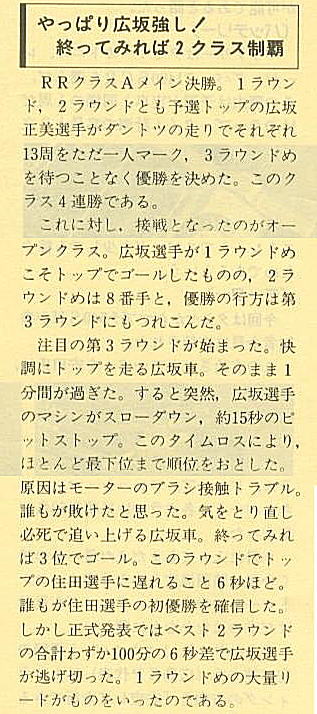 やっぱり広坂強し!
終ってみれば2クラス制覇
RRクラスAメイン決勝。1ラウン
ド，2ラウンドとも予選トップの広坂
正美選手がダントツの走りでそれぞれ
13周をただ一人マーク，3ラウンドめ
を待つことなく優勝を決めた。このク
ラス4連勝である。
これに対し，接戦となったのがオー
プンクラス。広坂選手が1ラウンドめ
こそトップでゴールしたものの，2ラ
ウンドめは8番手と，優勝の行方は第
3ラウンドにもつれこんだ。
注目の第3ラウンドが始まった。快
調にトップを走る広坂車。そのまま1
分間が過ぎた。すると突然，広坂選手
のマシンがスローダウン，約15秒のピ
ットストップ。このタイムロスにより，
ほとんど最下位まで順位をおとした。
原因はモーターのブラシ接触トラブル。
誰もが敗けたと思った。気をとり直し
必死で追い上げる広坂車。終ってみれ
ば3位でゴール。このラウンドでトッ
プの住田選手に遅れること6秒ほど。
誰もが住田選手の初優勝を確信した。
しかし正式発表ではベスト2ラウンド
の合計わずか100分の6秒差で広坂選手
が逃げ切った。1ラウンドめの大量リ
ードがものをいったのである。